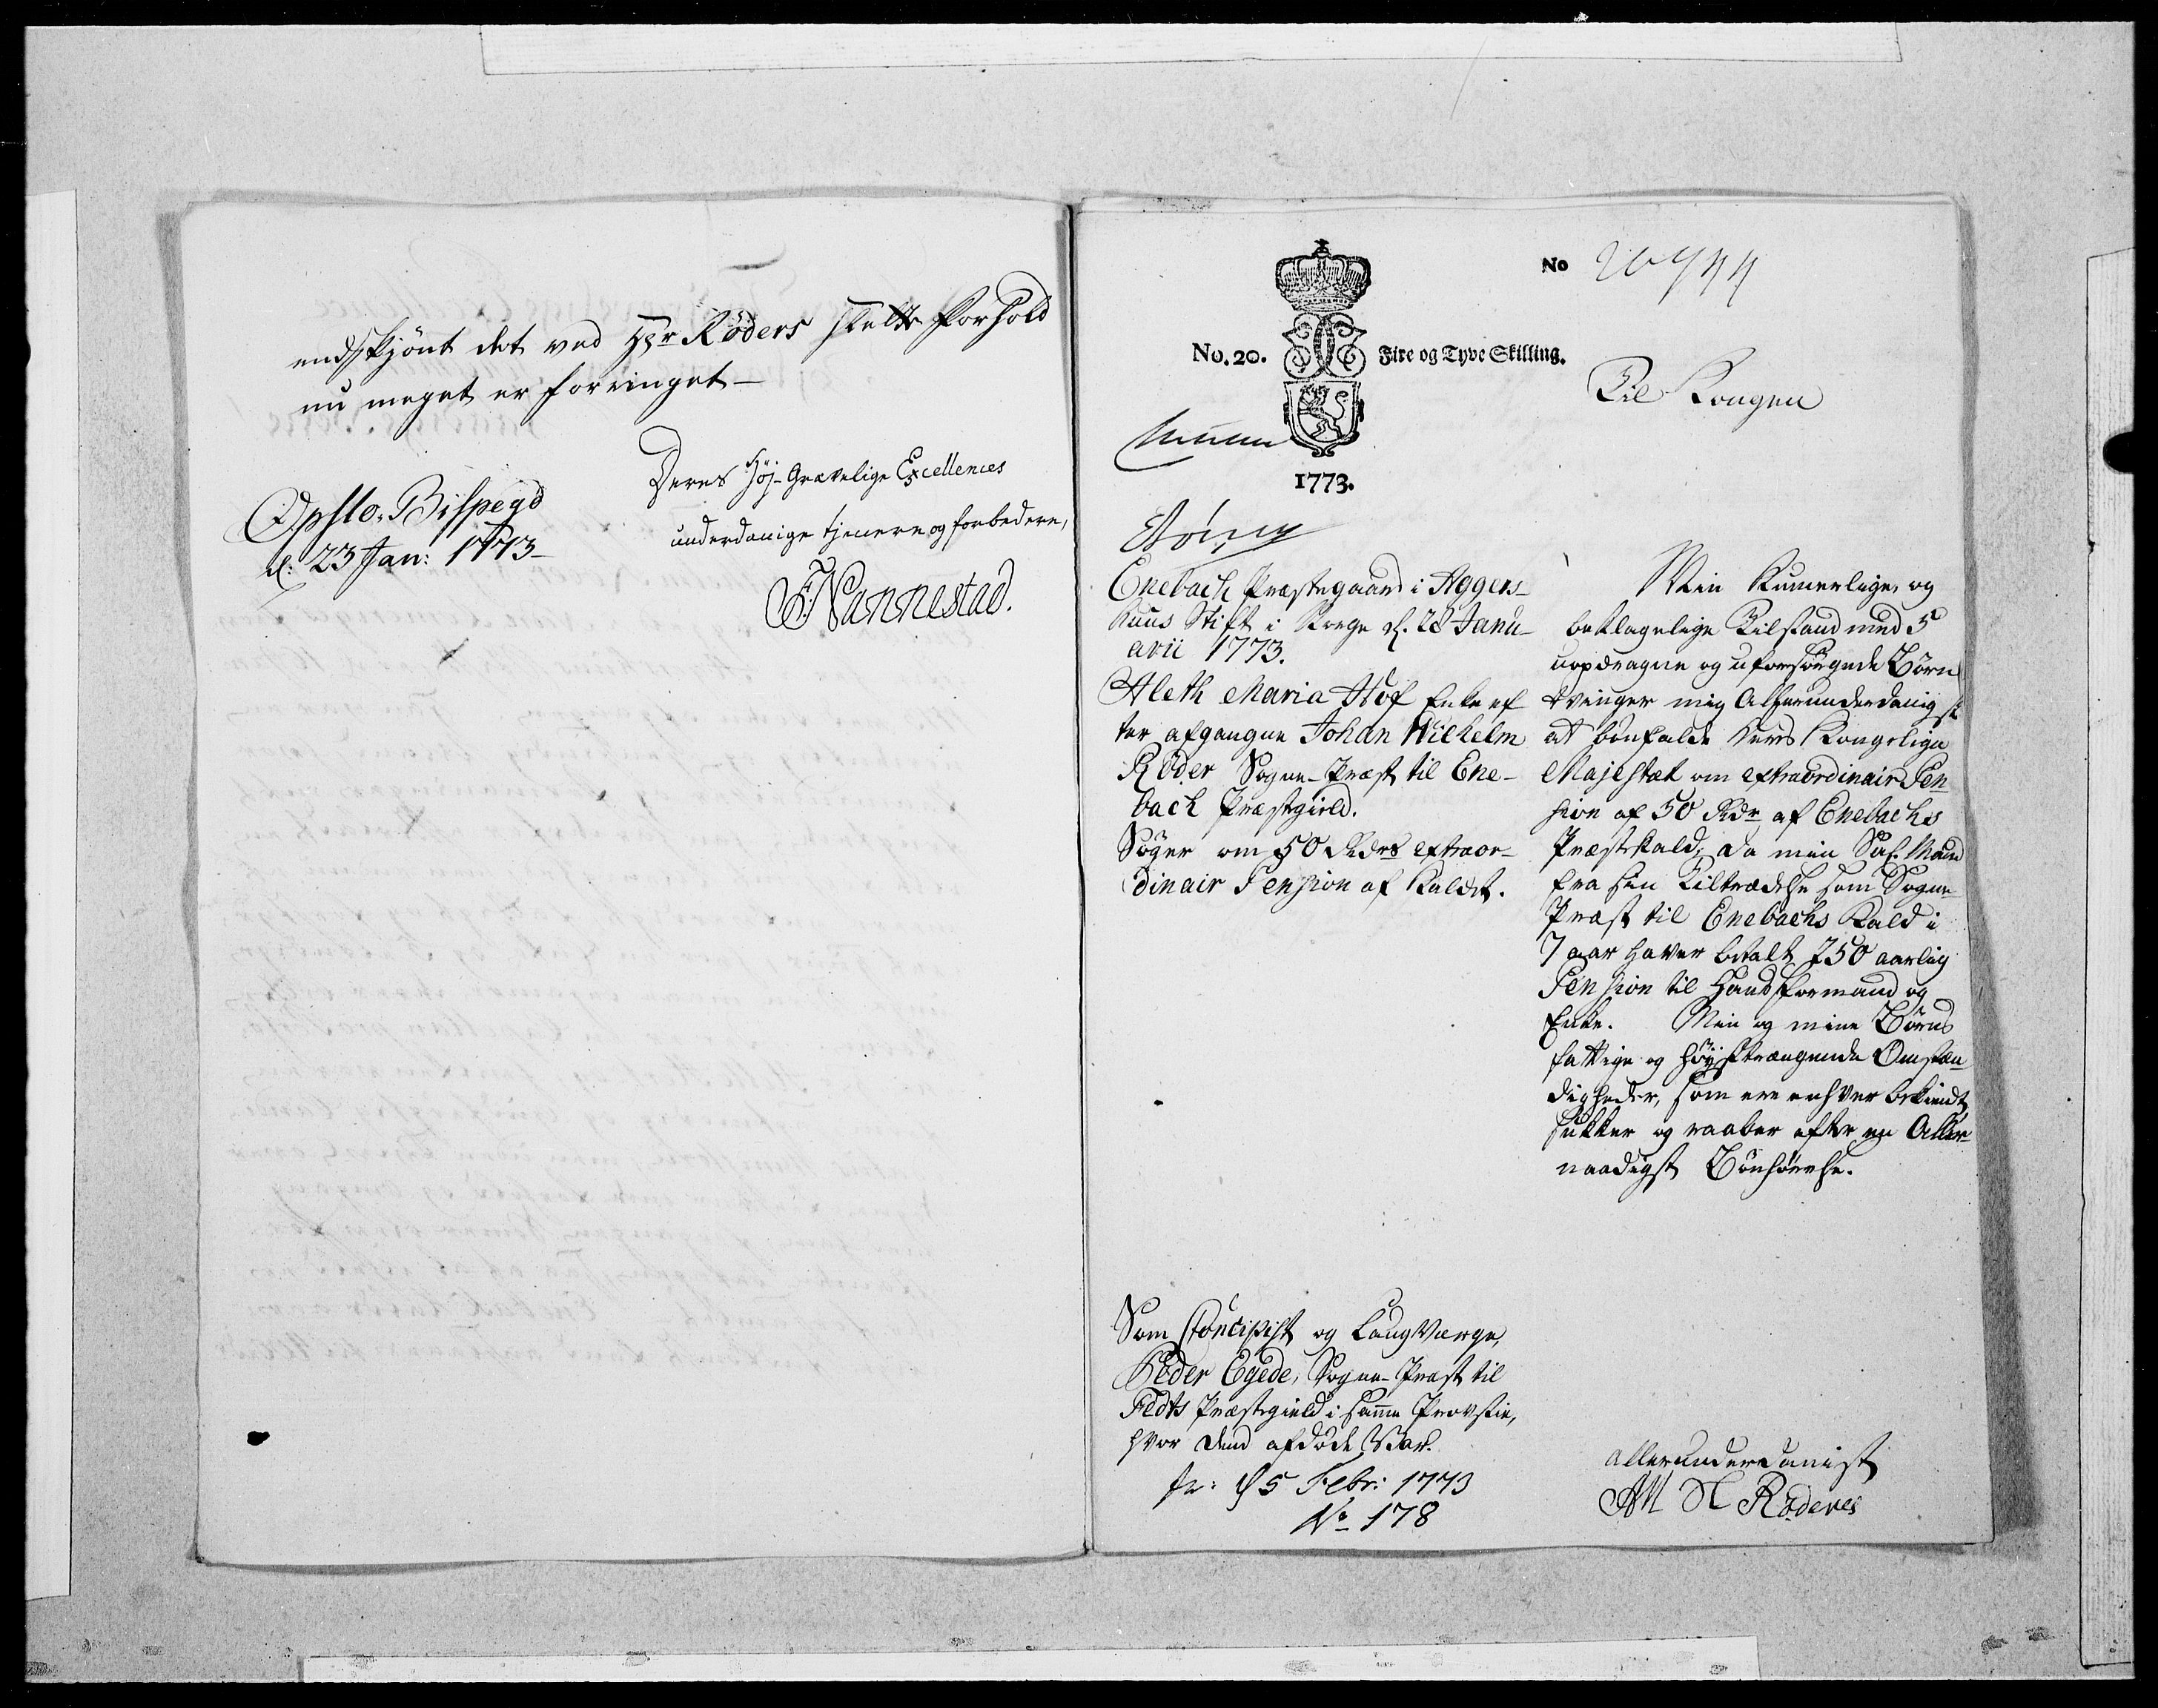 endskjønt det ved Hr Röders slette Forhold
nu meget er forringet —
Deres Høj-Grævelige Excellences
underdanige tjenere og forbedere,
Opslo-Bispegd
d: 23 Jan: 1773-
F. Nannestad.
No 20944
No. 20. Fire og Tyve Skilling.
Til Kongen
1773.
Enebach Præstegaard i Aggers-
huus Stift i Norge d. 28 Janu-
arii 1773.
Aleth Maria Hof Enke ef
ter afgangne Johan Wilhelm
Röder Sogne-Præst til Ene-
bach Præstegield.
Søger om 50 Rdrs extraor-
dinair Pension af Kaldet.
Min Kummerlige og
beklagelige Tilstand med 5
uopdragne og uforsørgede Børn
tvinger mig Allerunderdanigst
at bønfalde Deres Kongelige
Majestæt om extraordinair Pen
sion af 50 Rdr af Enebachs
Præstekald, da min Sal. Mand
fra sin Tiltrædelse som Sogne-
Præst til Enebachs Kald i
7 aar haver betalt 250 aarlig
Pension til Hands Formand og
Enke. Min og mine Børns
fattige og høystrængende Omstæn
digheder, som ere enhver bekiendt
sukker og raaber efter en Aller-
naadigst Bønhørelse.
Som Concipist og Laugværge,
Peder Egede, Sogne-Præst til
Fedts Præstegield i samme Provstie,
hvor dend afdøde Var.
allerunderdanigst
A M H Röderes
pr: d 5 Febr: 1773
No 178